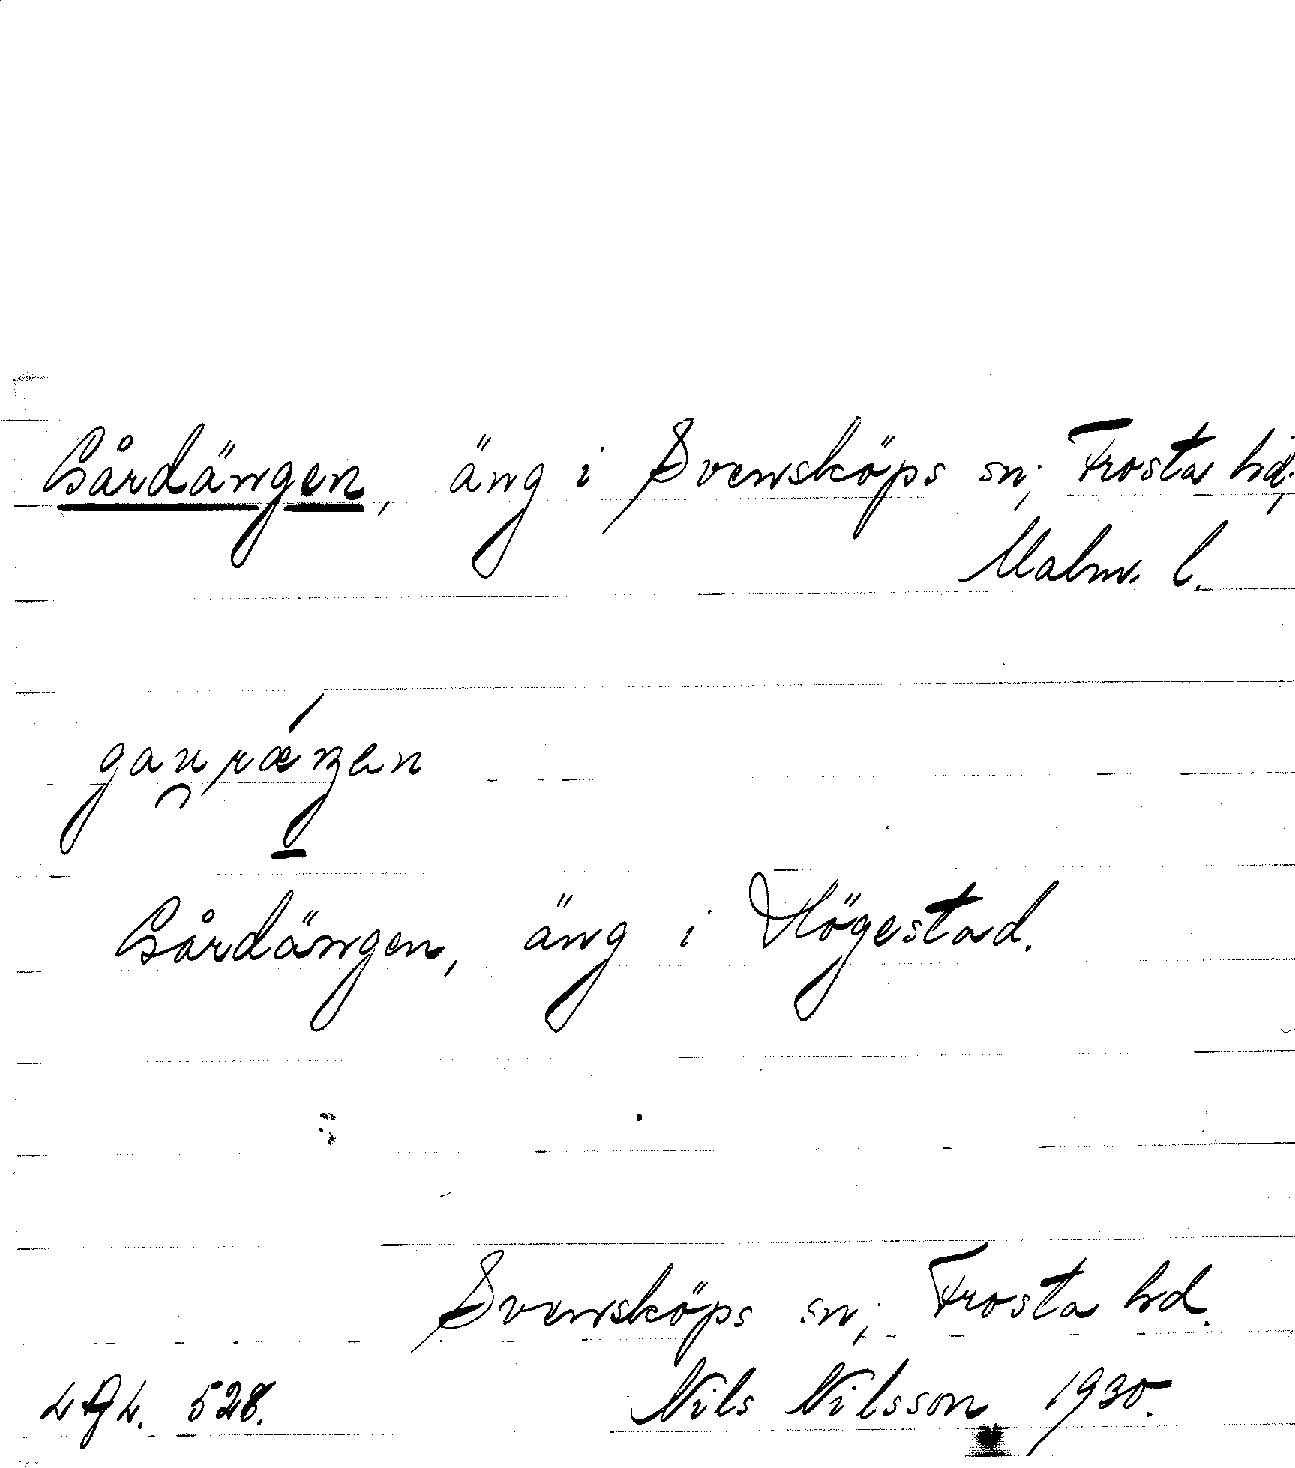 Gårdängen, äng i Svensköps sn, Frosta hd,
Malm. l.
gau̯rǽŋen
Gårdängen, äng i Högestad.
Svensköps sn, Frosta hd.
LGL. 528. Nils Nilsson 1930.